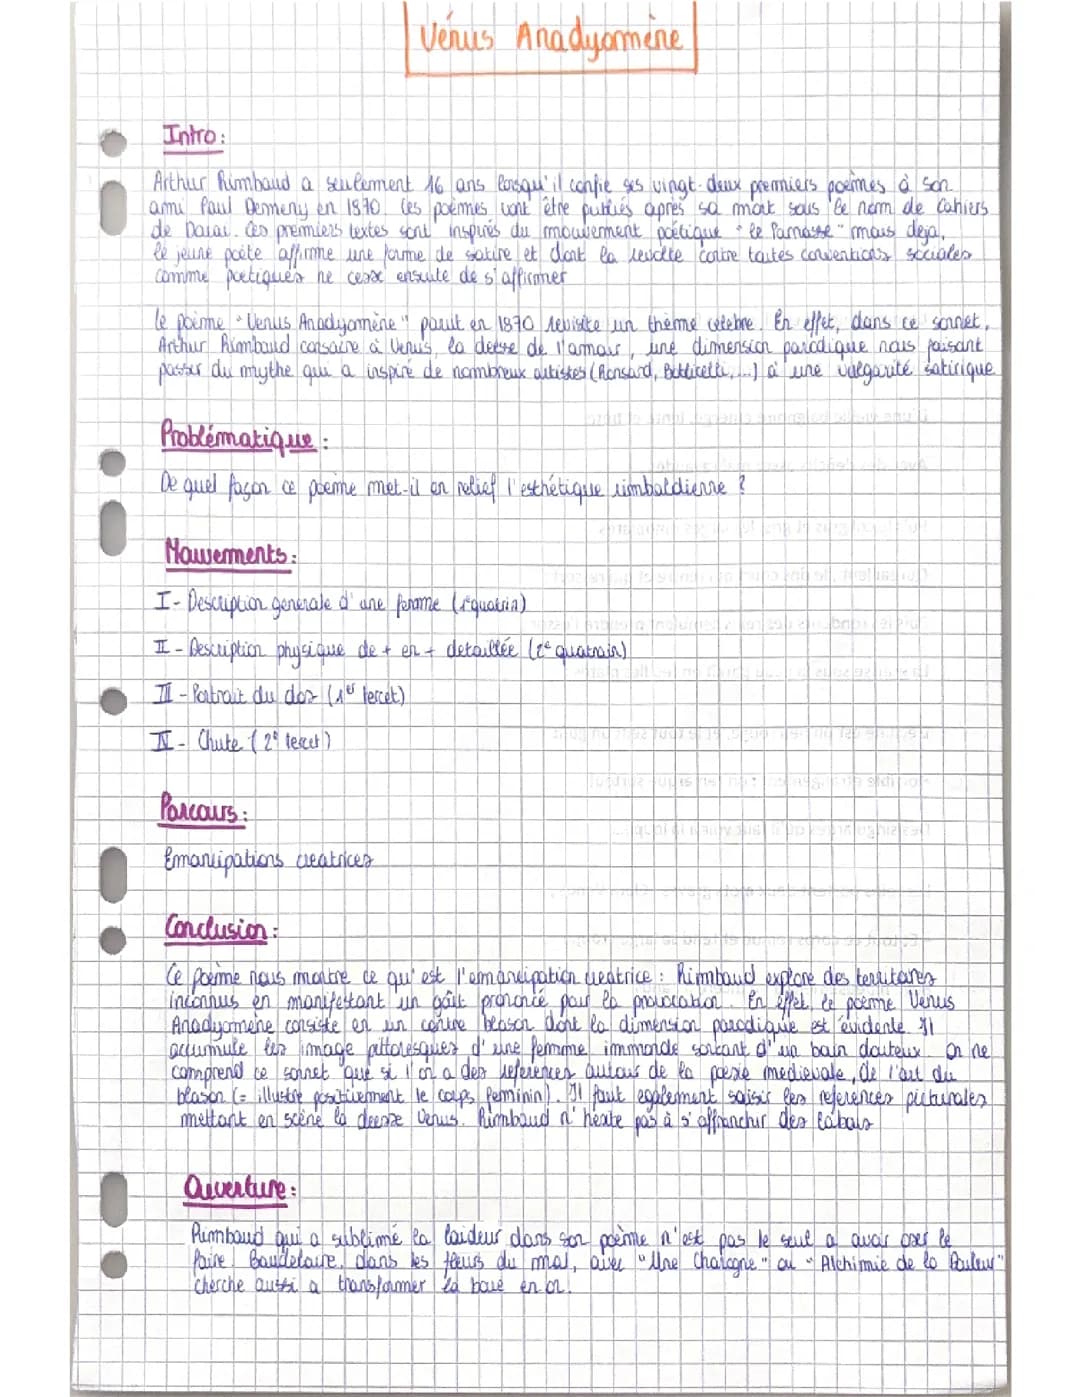 Vénus Anadyomène
Intro:
Arthur Rimbaud a seulement 16 ans lorsqu'il confie ses vingt-deux premiers poèmes à son
ami Paul Demeny en 1870. Ces poèmes vont être publiés après sa mort sous le nom de Cahiers
de Douai. Ces premiers textes sont inspirés du mouvement poétique "le Parnasse" mais déja,
le jeune poète affirme une forme de satire et dont la revolte contre toutes conventions sociales
comme poetiques ne cesse ensuite de s'affirmer
Le poème "Venus Anadyomène" parut en 1870 revisite un thème celebre. En effet, dans ce sonnet,
Arthur Rimbaud consacre à Venus, la deesse de l'amour, une dimension parodique nous faisant
passer du mythe qui a inspiré de nombreux autistes (Ronsard, Botticelli, ...) à une vulgarité satirique
Problématique :
De quel façon ce poème met-il en relief l'esthétique rimbaldienne ?
Mouvements :
I - Description generale d'une femme (1er quatrin)
II - Description physique de + en + detaillée (2e quatrain)
III - Portrait du dos (1er tercet)
IV - Chute (2e tercet)
Parcours :
Emancipations creatrices
Conclusion :
Ce poème nous montre ce qu'est l'emancipation creatrice : Rimbaud explore des territoires
inconnus en manifestant un goût prononcé pour la provocation. En effet, le poème Venus
Anadyomène consiste en un contre blason dont la dimension parodique est évidente. Il
accumule les image pittoresques d'une femme immonde sortant d'un bain douteux. On ne
comprend ce sonnet que si l'on a des references autour de la poesie medievale, de l'art du
blason (= illustre positivement le corps feminin). Il faut egalement saisir les references picturales
mettant en scène la deesse Venus. Rimbaud n'hesite pas à s'affranchir des tabous
Ouverture :
Rimbaud qui a sublimé la laideur dans son poème n'est pas le seul a avoir oser le
faire. Baudelaire, dans les fleurs du mal, avec "Une Charogne" ou "Alchimie de la Douleur"
cherche aussi a transformer la boue en or.